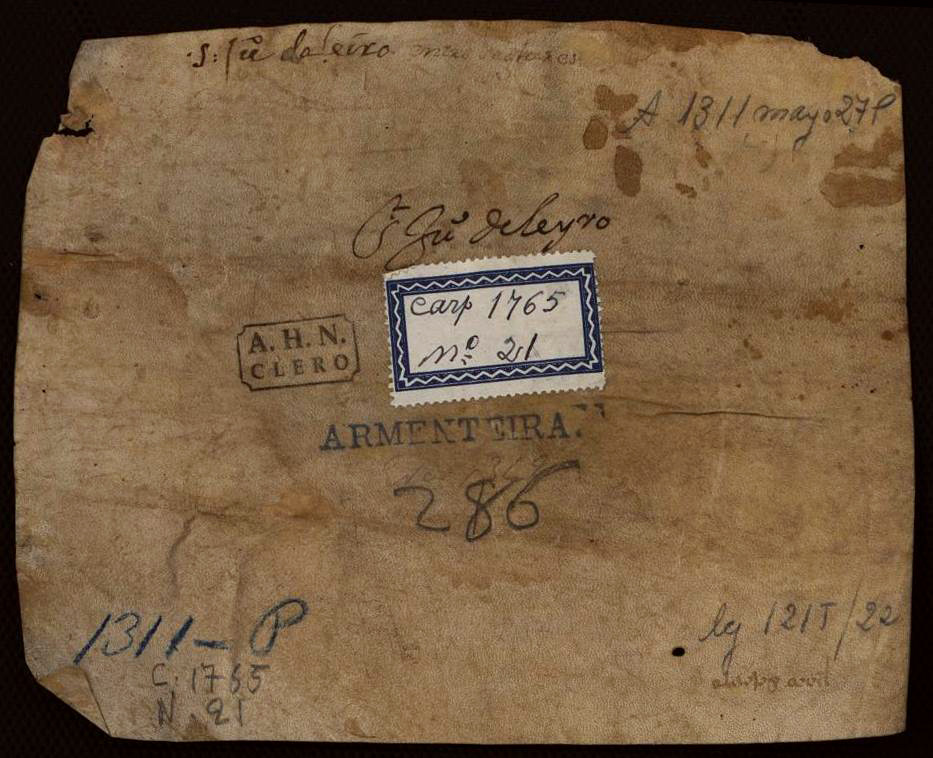 S: Jũ daleiro
A 1311 mayo 27 P
S Jũ deleyro
carp 1765
Nº 21
A. H. N.
CLERO
ARMENTEIRA.
286
1311 - P
C. 1765
N. 21
lg 1215/22